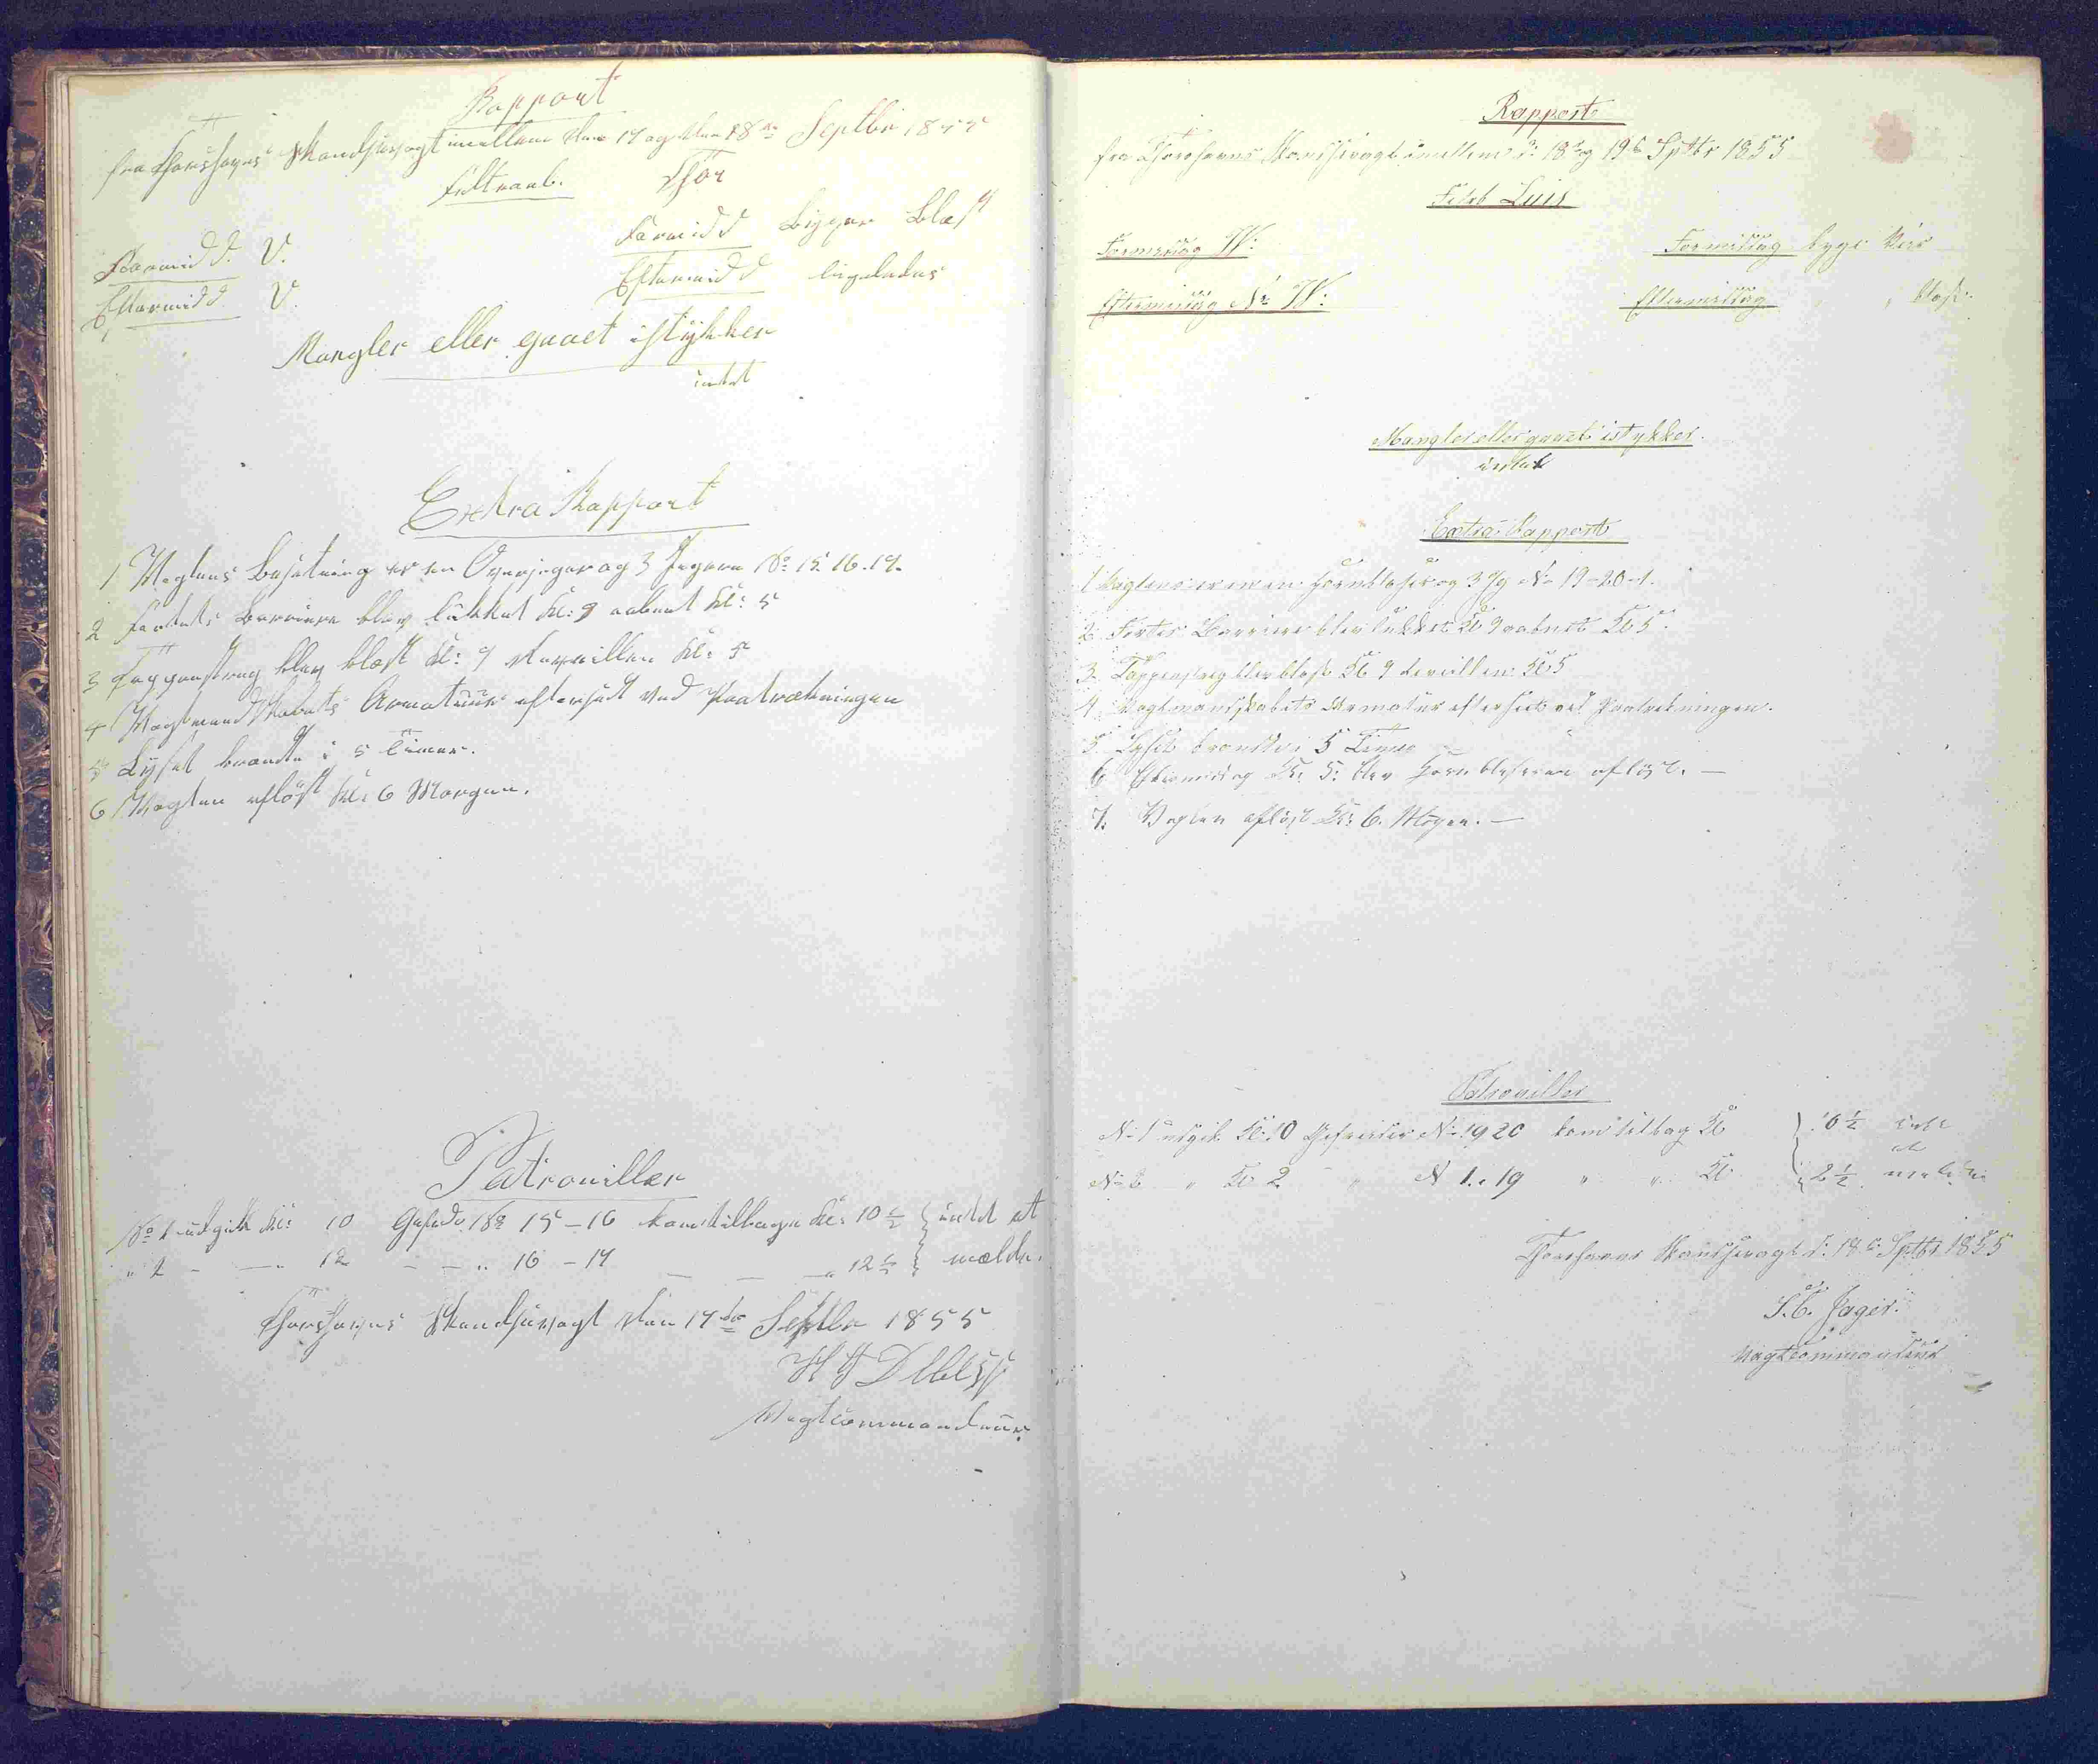 Rapport
fra Thorshavns Skandsevagt imellem den 17 og den 18de Septbr 1855
Feltraab. Thor
Formidd. V. Formidd Bygger Blæst
Eftermidd. V. Eftermidd ligeledes
Mangler eller gaaet istykker
intet
Extra Rapport
1 Vagtens Besætning er en Overjæger og 3 Jægere No 15. 16. 17.
2 Fortets Barriere blev lukket Kl: 9 aabnet Kl: 5
3 Tappenstreg blev blæst Kl: 9 Reveillen Kl: 5
4 Vagtmandskabets Armatuur efterseet ved Paatrækningen
5 Lyset brændte i 5 Timer.
6 Vagten afløst Kl: 6 Morgen.
Patrouiller
No 1 udgik Kl: 10 Gefrdr. No 15 – 16 kom tilbage Kl: 10½ } intet at
" 2 – — " 12 – – " 16 – 17 — — — " 12½ } mælde.
Thorshavns Skandsevagt den 17de Septbr 1855
Vagtcommandeur.
Rapport
fra Thorshavns Skandsevagt imellem d: 18 og 19de Sptbr 1855
Feltrb Luis
Formiddag W: Formiddag byge
Eftermiddag No W: Eftermiddag " " blæst.
Mangler eller gaaet istykker.
intet
Extra Rapport
1 Vagtens er en Hornblæser og 3 Jg No 19-20-1.
2 Fortes Barriere blev lukket Kl 9 aabnet Kl 5.
3 Tappenstreg blev blæst Kl 9 Reveillen Kl 5
4 Vagtmandskabets Armatur efterseet ved Paatrekningen.
5 Lyset brændte i 5 Timer
6 Eftermidag Kl: 5: blev Hornblæseren afløst. —
7. Vagten afløst Kl: 6. Mogen. —
Patrouiller
No 1 udgik Kl: 10 Gefreider No 19 20 kom tilbag Kl } 10½ intet
at
No 2 " Kl 2 " N 1. 19 " " Kl } 2½ melde
Thorshavns Skandsevagt d: 18de Sptbr 1855
Jager.
Vagtcommandeur